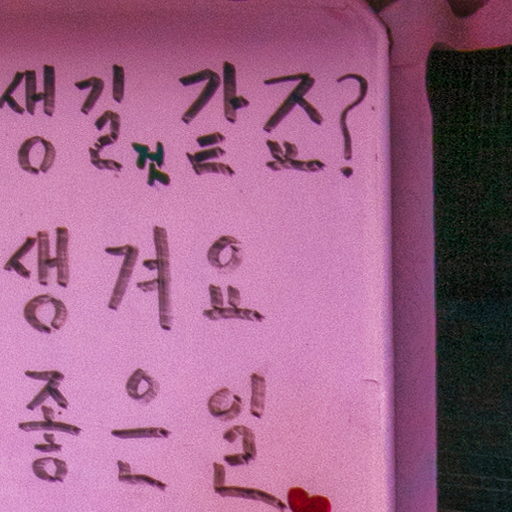 생길 것 같죠?
생겨요
좋은 일